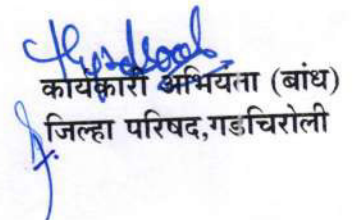 कार्यकारी अभियंता (बांध)
जिल्हा परिषद,गडचिरोली